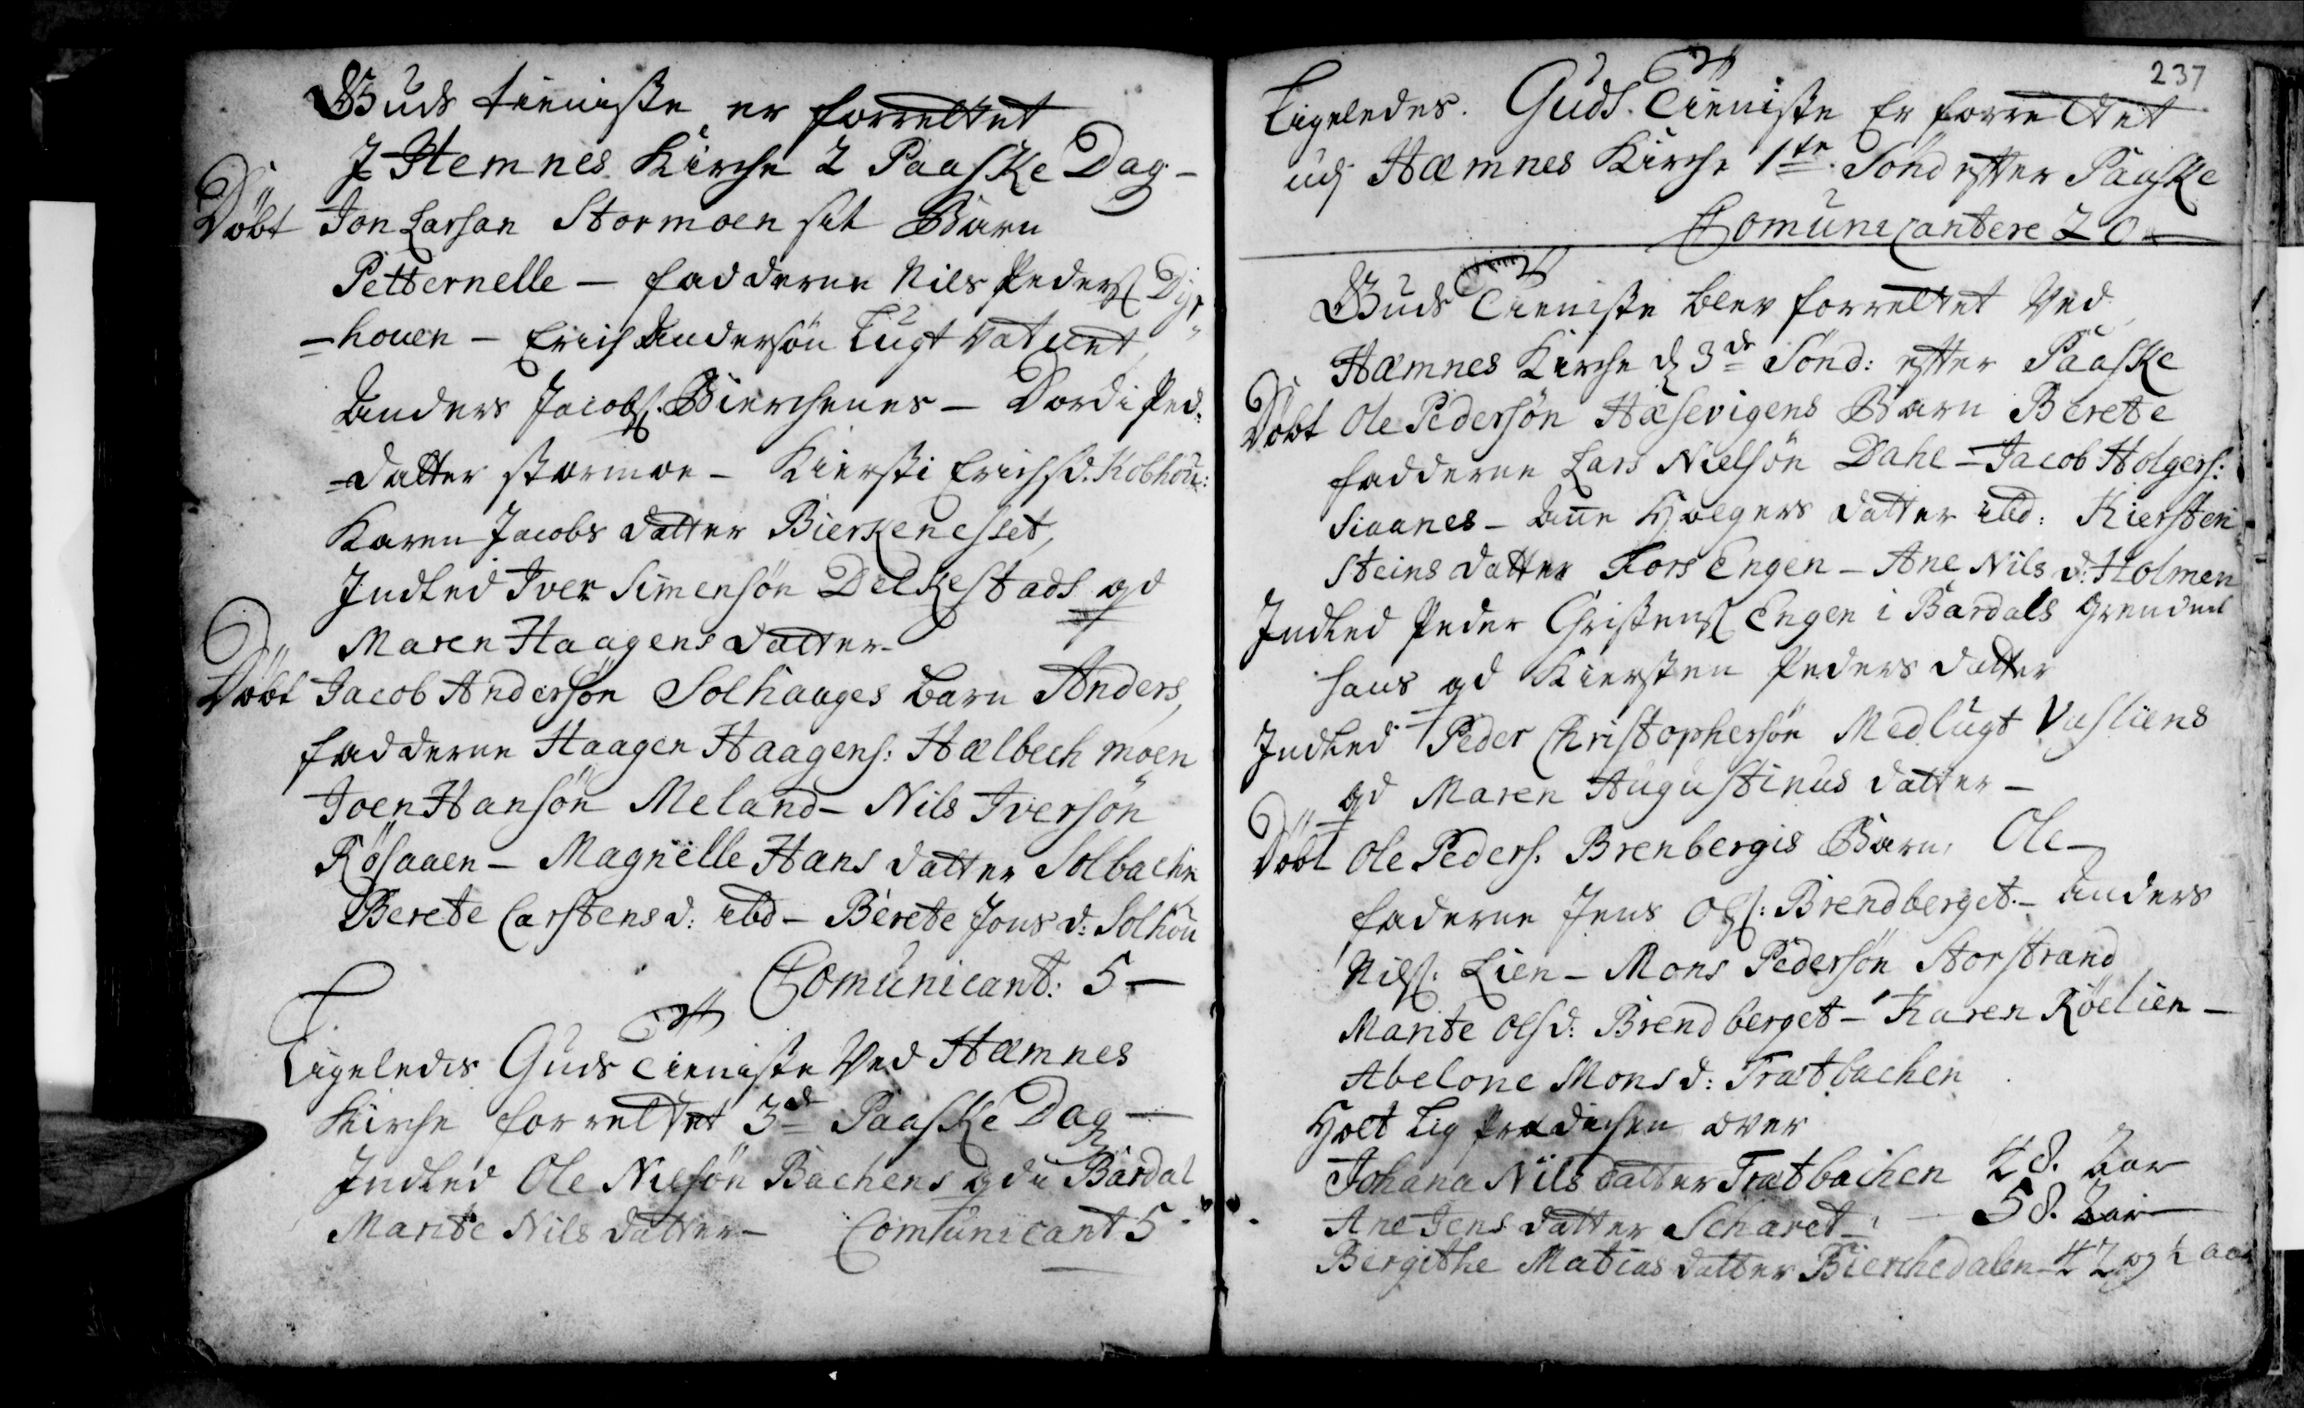 Guds tieniste er forrettet
J Hemnes Kirche 2 Paaske Dag -
Döbt Jon Larsøn Stormoen sit Barn
Petternelle - fadderne Nils Peders
- houen - Erich Andersön Lugt Vatnet,
Anders Jacobs. Bierchenes - Dordi Ped:
- datter stormoe - Kiersti Erichsd. Kobhou:
Karen Jacobs datter Bierkenesset,
Indled Iver Simensön Delkestads og
Maren Haagens datter -
Döbt Jacob Andersön Solhaages barn Anders,
fadderne Haagen Haagens: Hælbech moen
Joen Hansön Meland - Nils Iversön
Rösaaen - Magnelle Hans datter Solbachen
Berete Carstens d: ibd - Berete Jons d: Solhou
Comunicant: 5 -
Ligeledes Guds Tieniste Ved Hæmnes
Kirche forrettet 3de Paaske Dag -
Indled Ole Nilsön Bachens Bardal
Marite Nils datter - Comunicant 5 -
237
Ligeledes. Guds. Tieniste Er forrettet
udj Hæmnes Kirche 1te Sönd efter Paaske
Comunicantere 20
Guds Tieniste blev forrettet Ved
Hæmnes Kirche d 3de Sönd: efter Paaske
Döbt Ole Pedersön Hæsevigens Barn Berete
fadderne Lars Nielsön Dahl - Jacob Holgers:
Siaanes - Ane Holgers datter ibd: Kiersten
Steins datter Fors Engen - Ane Nils d: Holmen
Indled Peder Christens Engen i Bardals Grenden
hans og Kiersten Peders datter
Indled Peder Christophersön Medlugt Vasliens
og Maren Augustinus datter -
Döbt Ole Peders. Brenbergis Barn, Ole -
faderne Jens Ols: Brendberget. - Anders
Nils. Lien - Mons Pedersön Storstrand
Marite Ols d: Brendberget - Karen Röelien -
Abelone Mons d: Trætbachen
Holt Lig Prædichen over
Johana Nils datter Trætbaichen 48. Aar
Ane Jens datter Scharet - 58. Aar
Birgithe Matias datter Bierchedalen - 42 og ½ aar